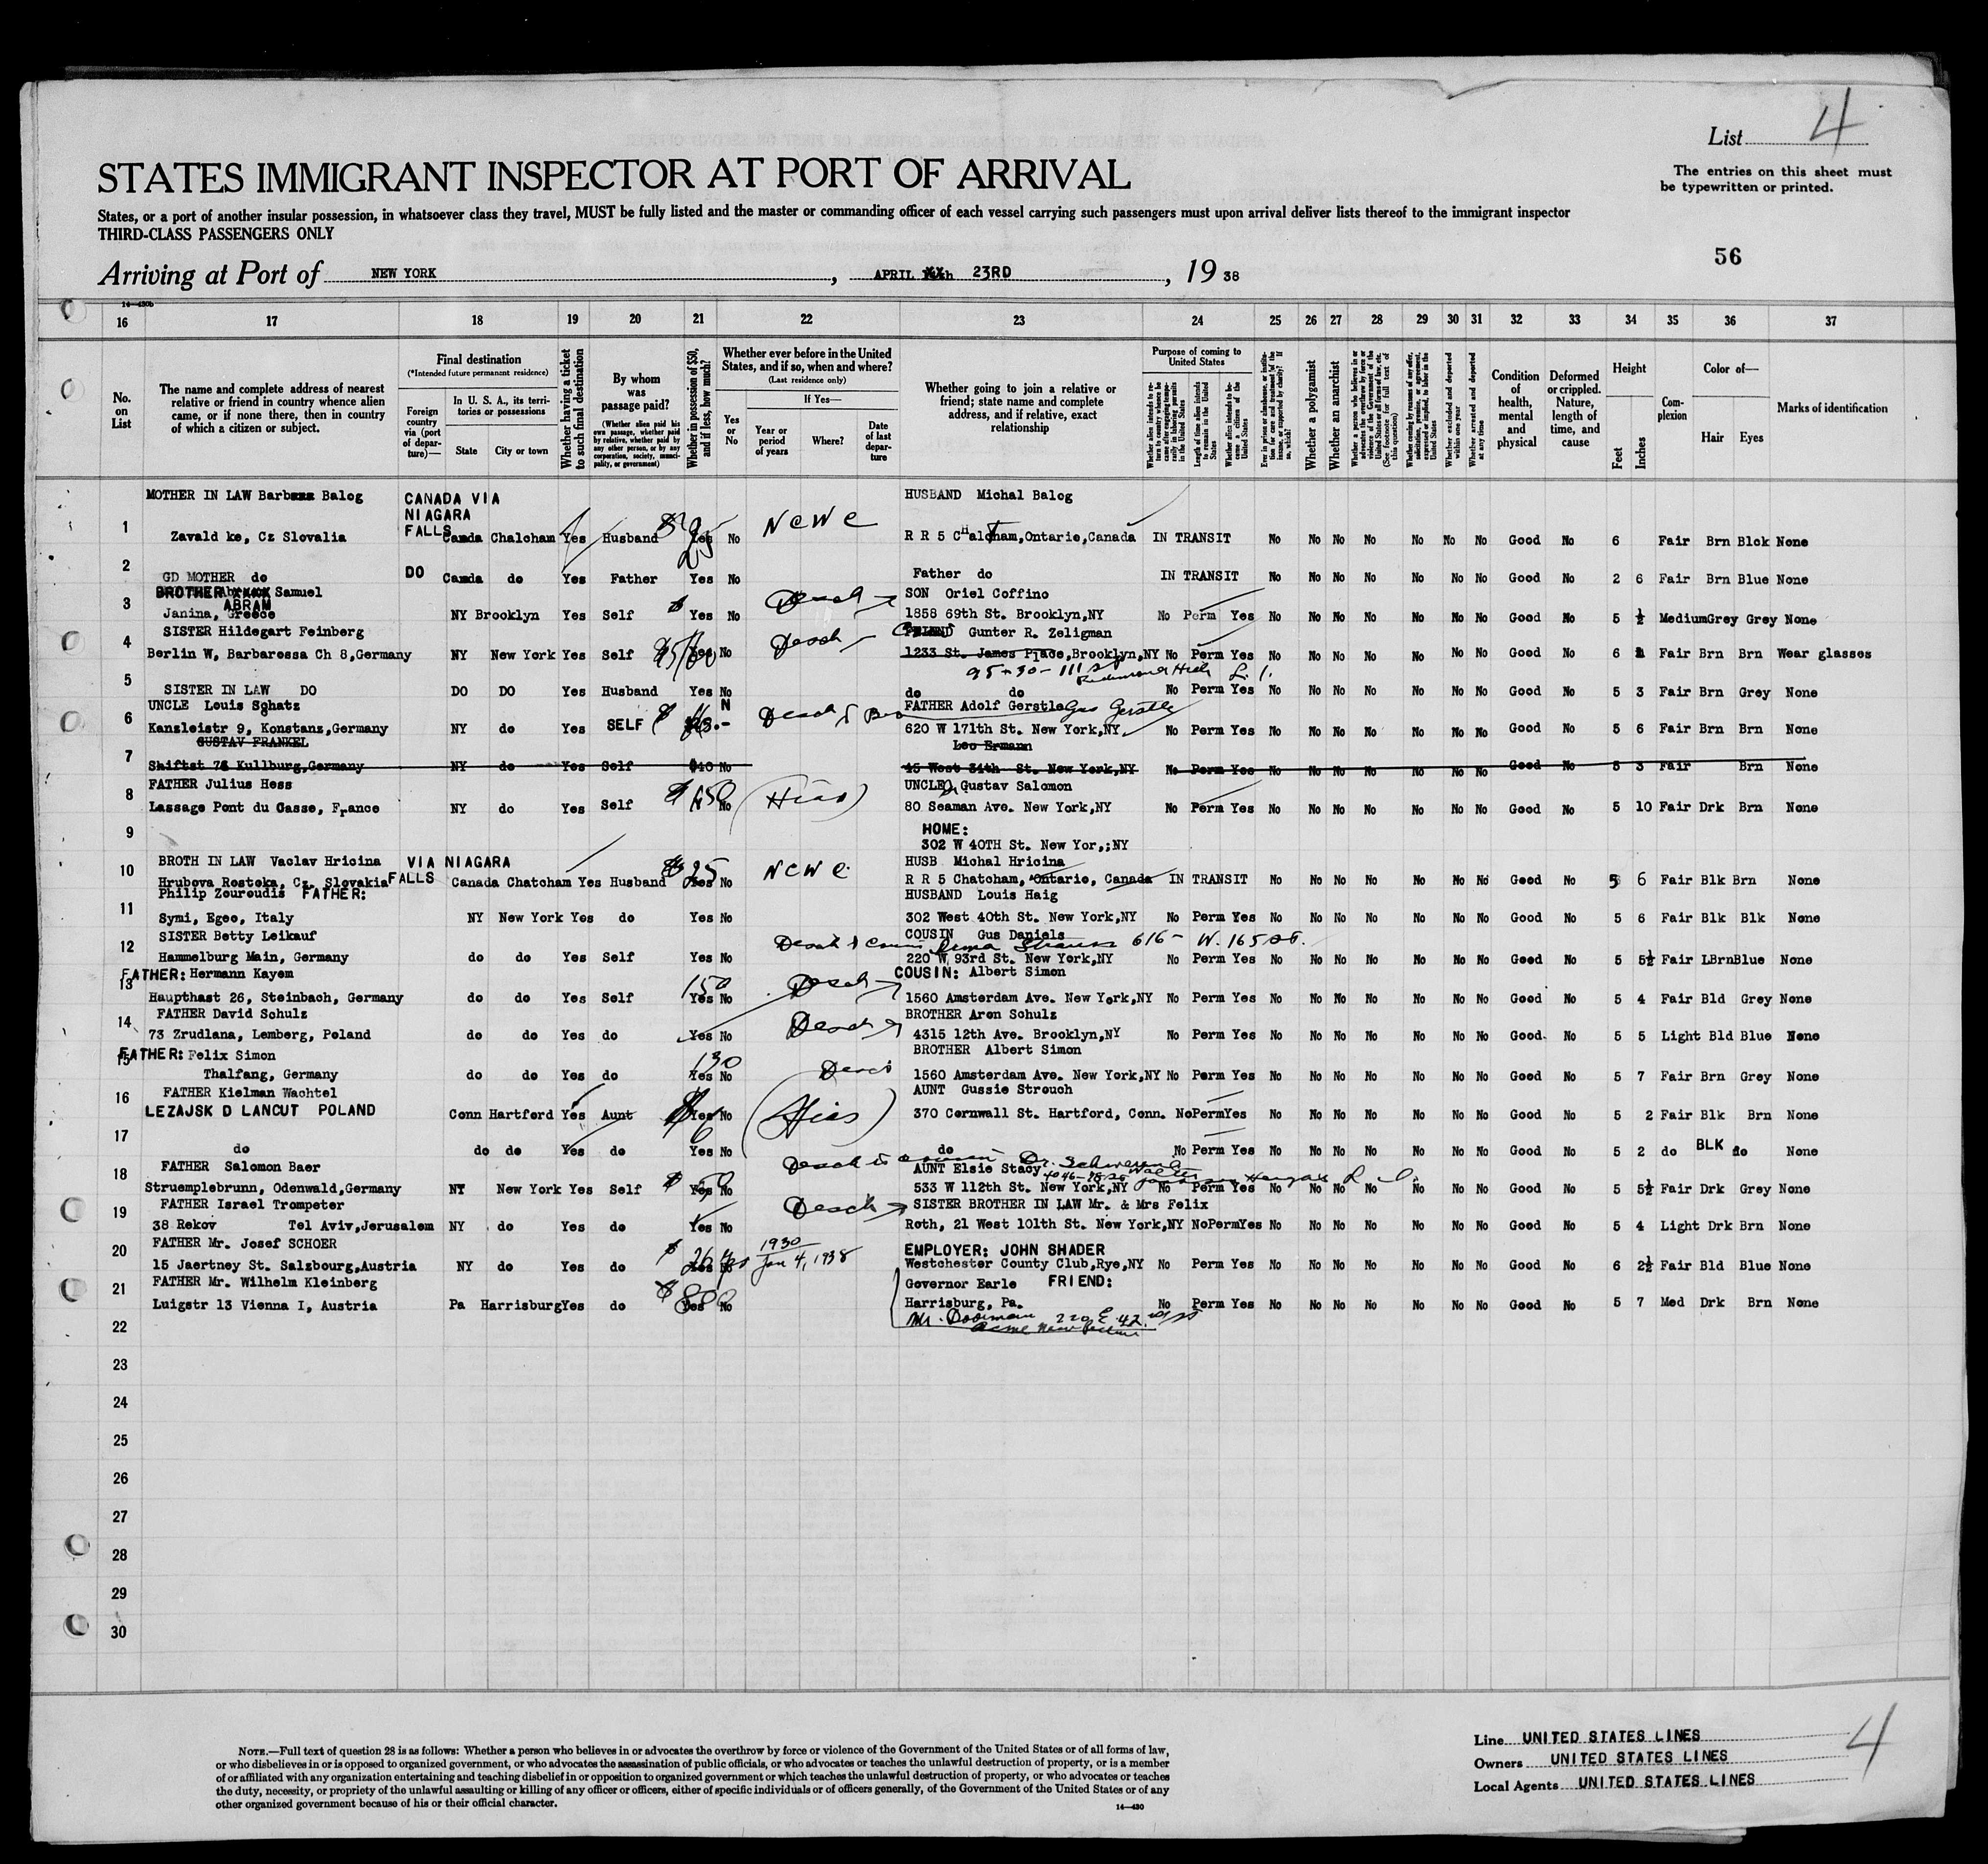 List 4
The entries on this sheet must
be typewritten or printed.
STATES IMMIGRANT INSPECTOR AT PORT OF ARRIVAL
States, or a port of another insular possession, in whatsoever class they travel, MUST be fully listed and the master or commanding officer of each vessel carrying such passengers must upon arrival deliver lists thereof to the immigrant inspector
THIRD-CLASS PASSENGERS ONLY
56
Arriving at Port of NEW YORK, APRIL 23RD, 1938
14—430b
16 17 18 19 20 21 22 23 24 25 26 27 28 29 30 31 32 33 34 35 36 37
No. on List
The name and complete address of nearest relative or friend in country whence alien came, or if none there, then in country of which a citizen or subject.
Final destination
(*Intended future permanent residence)
Foreign country via (port of departure)—
In U. S. A., its territories or possessions
State City or town
Whether having a ticket to such final destination
By whom was passage paid?
(Whether alien paid his own passage, whether paid by relative, whether paid by any other person, or by any corporation, society, municipality, or government)
Whether in possession of $50, and if less, how much?
Whether ever before in the United States, and if so, when and where?
(Last residence only)
Yes or No
If Yes—
Year or period of years Where? Date of last departure
Whether going to join a relative or friend; state name and complete address, and if relative, exact relationship
Purpose of coming to United States
Whether alien intends to return to country whence he came after engaging temporarily in laboring pursuits in the United States
Length of time alien intends to remain in the United States
Whether alien intends to become a citizen of the United States
Ever in prison or almshouse, or institution for care and treatment of the insane, or supported by charity? If so, which?
Whether a polygamist
Whether an anarchist
Whether a person who believes in or advocates the overthrow by force or violence of the Government of the United States or all forms of law, etc. (See footnote for full text of this question)
Whether coming by reason of any offer, solicitation, promise, or agreement, expressed or implied, to labor in the United States
Whether excluded and deported within one year
Whether arrested and deported at any time
Condition of health, mental and physical
Deformed or crippled. Nature, length of time, and cause
Height
Feet Inches
Complexion
Color of—
Hair Eyes
Marks of identification
MOTHER IN LAW Barbara Balog CANADA VIA NIAGARA FALLS HUSBAND Michal Balog
1 Zavald ke, Cz Slovalia Canda Chalcham Yes Husband $25 Yes No NCWC R R 5 Chalcham, Ontario, Canada IN TRANSIT No No No No No No No Good No 6 Fair Brn Blck None
2 GD MOTHER do DO Canda do Yes Father Yes No Father do IN TRANSIT No No No No No No No Good No 2 6 Fair Brn Blue None
BROTHER ABRAM Samuel SON Oriel Coffino
3 Janina, Greece NY Brooklyn Yes Self $ Yes No 1858 69th St. Brooklyn,NY No Perm Yes No No No No No No No Good No 5 ½ Medium Grey Grey None
SISTER Hildegart Feinberg Gunter R. Zeligman
4 Berlin W, Barbarossa Ch 8,Germany NY New York Yes Self Yes No 1233 St. James Place,Brooklyn,NY No Perm Yes No No No No No No No Good No 6 Fair Brn Brn Wear glasses
95-30-111 St Richmond Hill L.I.
5 SISTER IN LAW DO DO DO Yes Husband Yes No do do No Perm Yes No No No No No No No Good No 5 3 Fair Brn Grey None
UNCLE Louis Schatz N FATHER Adolf Gerstle Gus Gerstle
6 Kanzleistr 9, Konstanz,Germany NY do Yes SELF 620 W 171th St. New York,NY. No Perm Yes No No No No No No No Good No 5 6 Fair Brn Brn None
GUSTAV FRANKEL Leo Ermann
7 Shiftst 76 Kullburg,Germany NY do Yes Self $40 No 45 West 34th St. New York,NY No Perm Yes No No No No No No No Good No 5 3 Fair Brn None
FATHER Julius Hess UNCLE Gustav Salomon
8 Lassage Pont du Casse, France NY do Yes Self $150 No (Hias) 80 Seaman Ave. New York,NY No Perm Yes No No No No No No No Good No 5 10 Fair Drk Brn None
9 HOME:
302 W 40TH St. New Yor,;NY
BROTH IN LAW Vaclav Hricina VIA NIAGARA FALLS HUSB Michal Hricina
10 Hrubova Rostoka, Cz. Slovakia Canada Chatcham Yes Husband $25 Yes No NCWC R R 5 Chatcham, Ontario, Canada IN TRANSIT No No No No No No No Good No 5 6 Fair Blk Brn None
Philip Zouroudis FATHER: HUSBAND Louis Haig
11 Symi, Egeo, Italy NY New York Yes do Yes No 302 West 40th St. New York,NY No Perm Yes No No No No No No No Good No 5 6 Fair Blk Blk None
SISTER Betty Leikauf COUSIN Gus Daniels
Strauss 616 - W. 165 St.
12 Hammelburg Main, Germany do do Yes Self Yes No 220 W 93rd St. New York,NY No Perm Yes No No No No No No No Good No 5 5½ Fair LBrn Blue None
FATHER: Hermann Kayem COUSIN: Albert Simon
13 Haupthast 26, Steinbach, Germany do do Yes Self 150 Yes No 1560 Amsterdam Ave. New York,NY No Perm Yes No No No No No No No Good No 5 4 Fair Bld Grey None
FATHER David Schulz BROTHER Aron Schulz
14 73 Zrudlana, Lemberg, Poland do do Yes do Yes No 4315 12th Ave. Brooklyn,NY No Perm Yes No No No No No No No Good No 5 5 Light Bld Blue None
FATHER: Felix Simon BROTHER Albert Simon
15 Thalfang, Germany do do Yes do 130 Yes No 1560 Amsterdam Ave. New York,NY No Perm Yes No No No No No No No Good No 5 7 Fair Brn Grey None
FATHER Kielman Wachtel AUNT Gussie Strouch
16 LEZAJSK D LANCUT POLAND Conn Hartford Yes Aunt Yes No (Hias) 370 Cornwall St. Hartford, Conn. No Perm Yes No No No No No No No Good No 5 2 Fair Blk Brn None
17 do do do Yes do Yes No do No Perm Yes No No No No No No No Good No 5 2 do BLK do None
FATHER Salomon Baer AUNT Elsie Stacy
18 Struemplebrunn, Odenwald,Germany NY New York Yes Self Yes No 533 W 112th St. New York,NY No Perm Yes No No No No No No No Good No 5 5½ Fair Drk Grey None
FATHER Israel Trompeter SISTER BROTHER IN LAW Mr. & Mrs Felix
19 38 Rekov Tel Aviv,Jerusalem NY do Yes do Yes No Roth, 21 West 101th St. New York,NY No Perm Yes No No No No No No No Good No 5 4 Light Drk Brn None
FATHER Mr. Josef SCHOER 1930 EMPLOYER: JOHN SHADER
20 15 Jaertney St. Salzbourg,Austria NY do Yes do $ 26 Yes Jan 4, 1938 Westchester County Club,Rye,NY No Perm Yes No No No No No No No Good No 6 2½ Fair Bld Blue None
FATHER Mr. Wilhelm Kleinberg Governor Earle FRIEND:
21 Luigstr 13 Vienna I, Austria Pa Harrisburg Yes do Yes No Harrisburg, Pa. No Perm Yes No No No No No No No Good No 5 7 Med Drk Brn None
22 Mr. 220 E. 42nd St
Acme
23
24
25
26
27
28
29
30
NOTE.—Full text of question 28 is as follows: Whether a person who believes in or advocates the overthrow by force or violence of the Government of the United States or of all forms of law,
or who disbelieves in or is opposed to organized government, or who advocates the assassination of public officials, or who advocates or teaches the unlawful destruction of property, or is a member
of or affiliated with any organization entertaining and teaching disbelief in or opposition to organized government or which teaches the unlawful destruction of property, or who advocates or teaches
the duty, necessity, or propriety of the unlawful assaulting or killing of any officer or officers, either of specific individuals or of officers generally, of the Government of the United States or of any
other organized government because of his or their official character.
14—430
Line UNITED STATES LINES
Owners UNITED STATES LINES
Local Agents UNITED STATES LINES
4